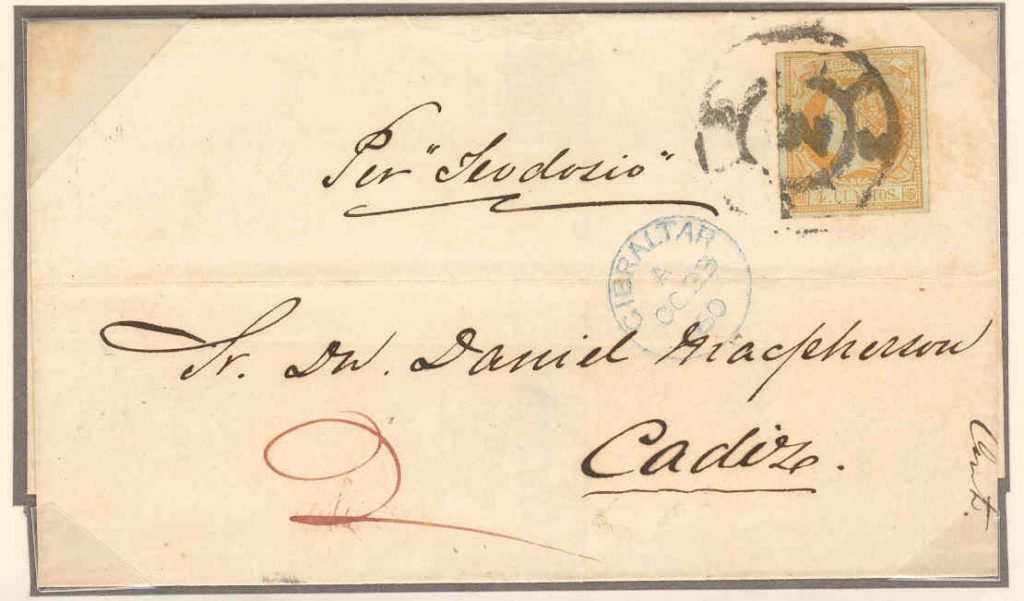 Per "Teodosio"
4 CUARTOS.
GIBRALTAR
A
OC 23
60
Sr. Dn. Daniel Macpherson
Cadiz.
2